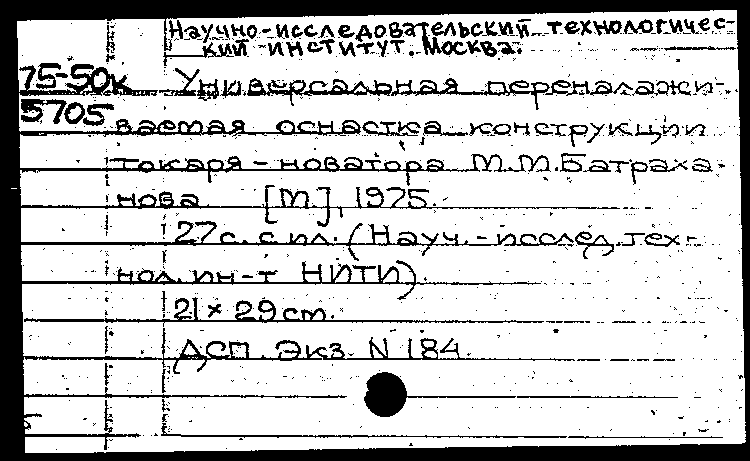 Научно-исследовательский технологичес-
кий институт. Москва.
75-50к Универсальная переналажи-
5705 ваемая оснастка конструкции
токаря-новатора М.М.Батраха-
нова [М], 1975.
27с. с ил. (Науч.-исслед. тех-
нол. ин-т НИТИ).
21 × 29 cm.
ДСП. Экз. N 184.